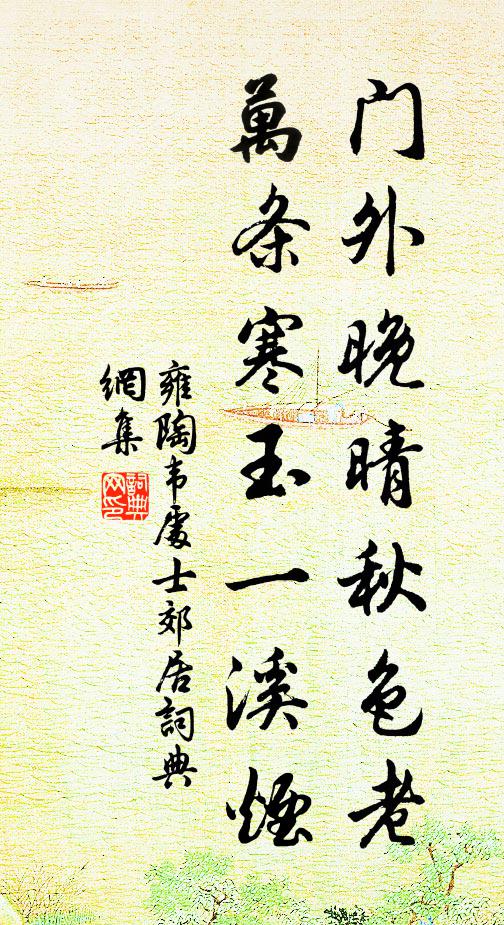 门外晚晴秋色老
萬条寒玉一溪煙
雍陶韦處士郊居詞典
網集
詞典
网印